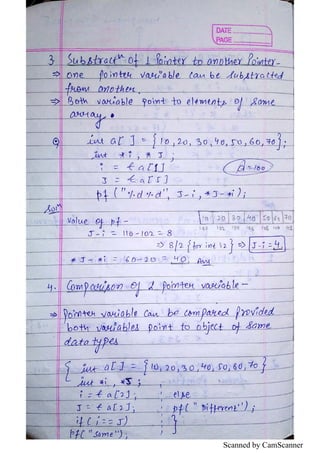 DATE
PAGE
3 Substractn of 1 Pointer to another Pointer-
⇒ one pointer variable can be substracted
from another.
⇒ Both variable point to elements of same
array.
Q int a[ ] = {10, 20, 30, 40, 50, 60, 70};
int *i, *J;
i = &a[1]
J = &a[5]
a=100
pf ("%d %d", J-i, *J-*i);
Soln
value of pf -
10 20 30 40 50 60 70
J-i = 110-102 = 8
⇒ 8/2 {for int 2} ⇒ J-i=4
*J-*i = 60-20 = 40 Ans
4. Comparison of 2 pointer variable-
⇒ Pointer variable can be compared provided
both variables point to object of same
data types
{ int a[ ] = {10, 20, 30, 40, 50, 60, 70}
int *i, *J;
i = &a[2]; else
J = &a[2]; pf(" Different");
if (i == J) }
pf(" Same");
Scanned by CamScanner